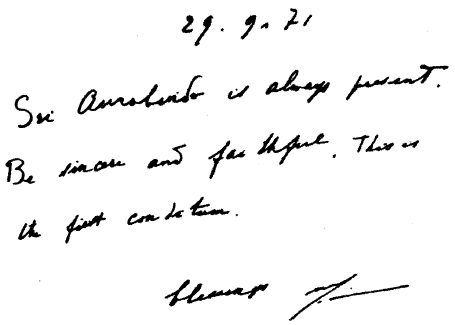 29.9.71
Sri Aurobindo is always present.
Be sincere and faithful. This is
the first condition.
blessings